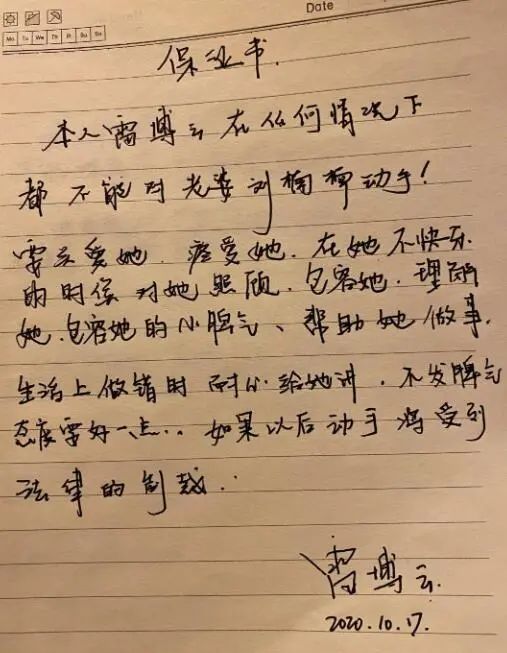 Date
Mo Tu We Th Fr Sa Su
保证书.
本人雷博云在任何情况下
都不能对老婆刘楠楠动手!
要关爱她.疼爱她.在她不快乐
的时侯对她照顾.包容她.理解
她.包容她的小脾气、帮助她做事.
生活上做错时耐心给她讲.不发脾气
态度要好一点..如果以后动手将受到
法律的制裁..
雷博云.
2020.10.17.